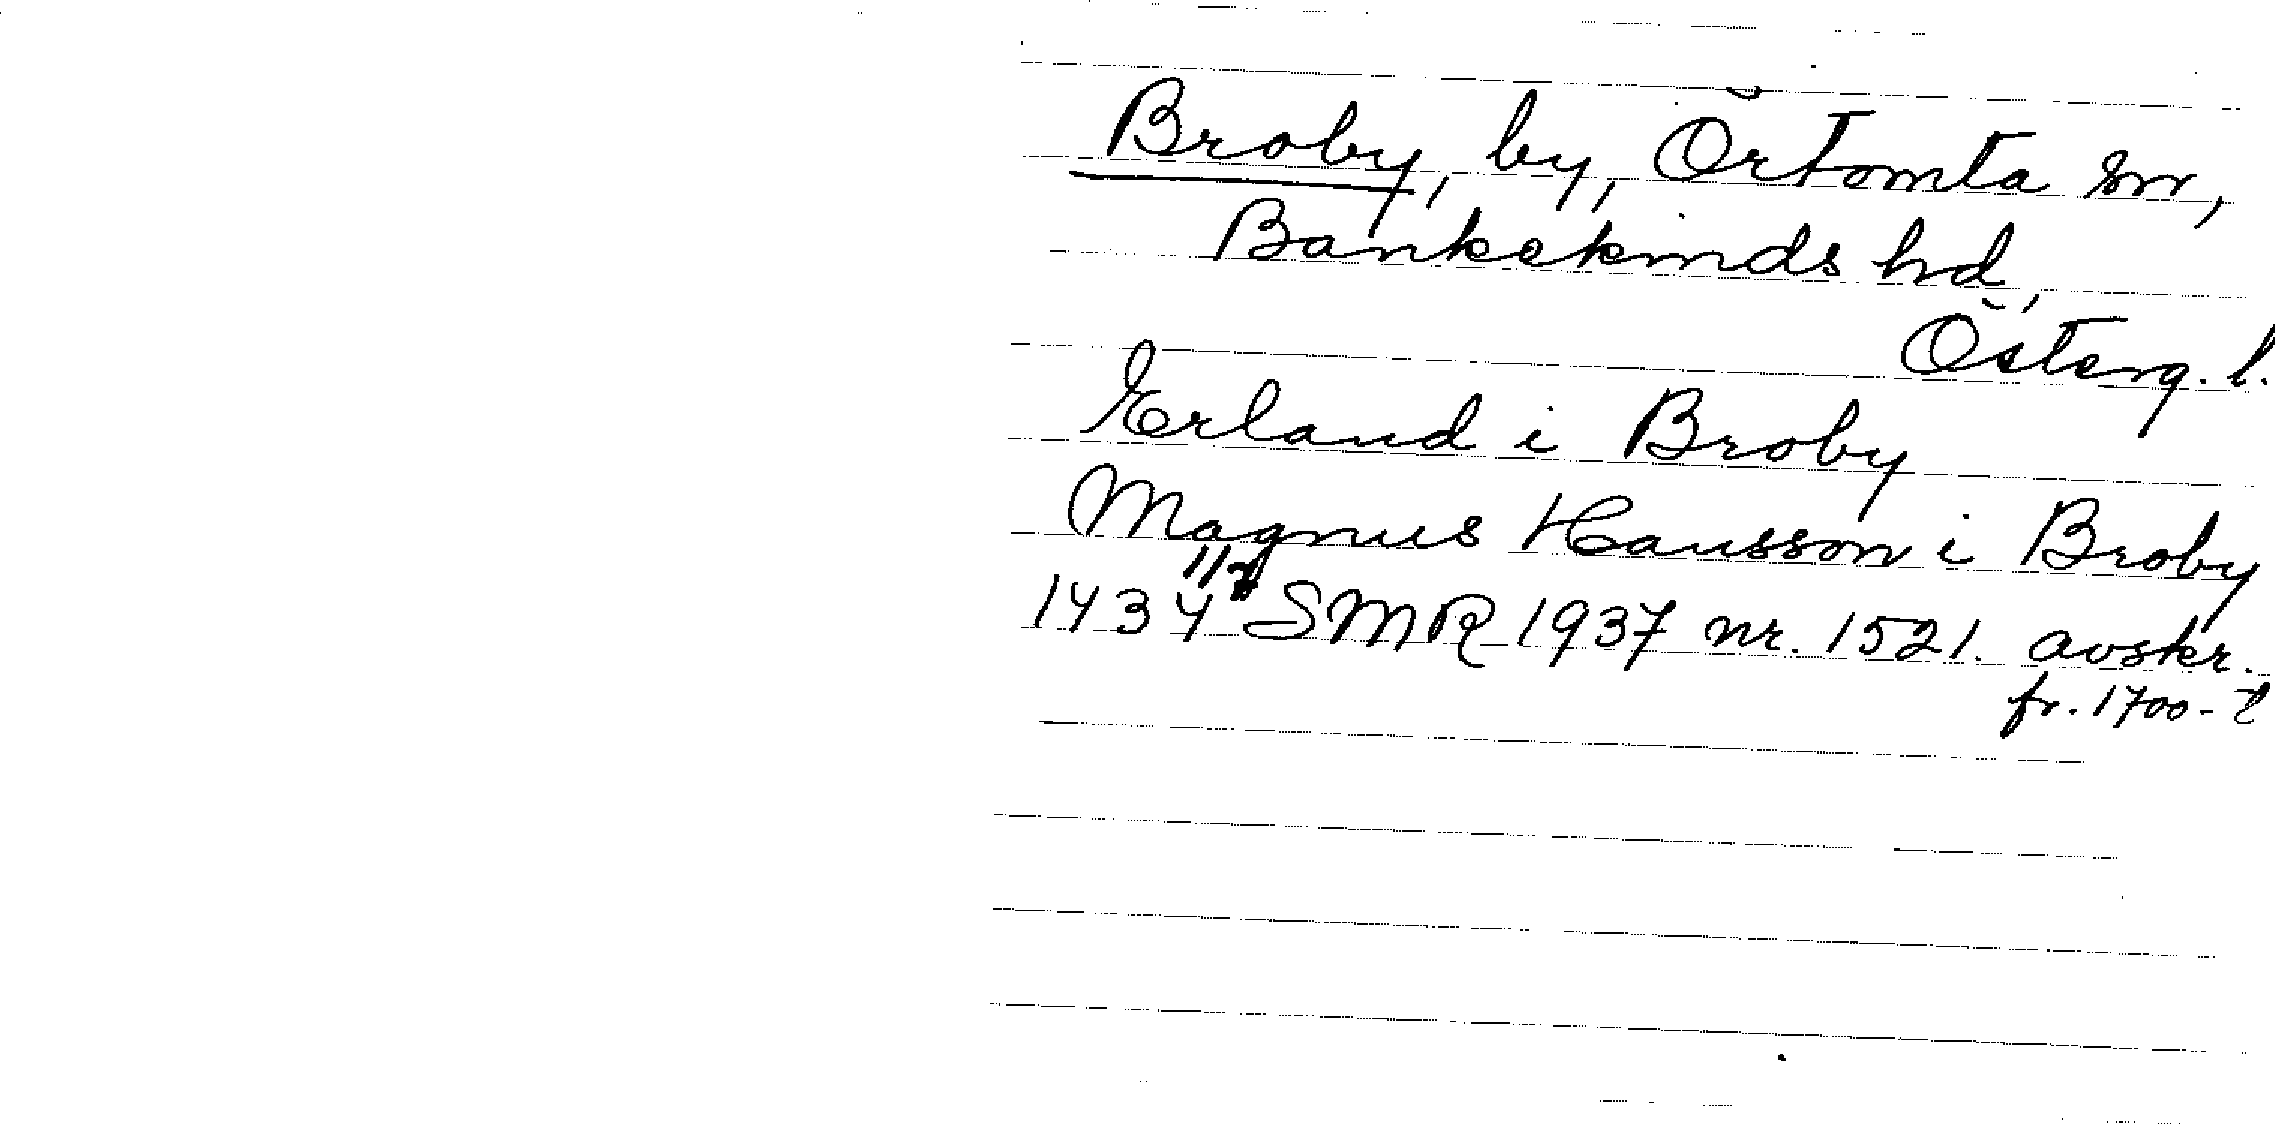 Broby, by, Örtomta sn,
Bankekinds hd,
Österg. l.
Erland i Broby
Magnus Hansson i Broby
1434 SMR 1937 nr. 1521. avskr.
fr. 1700-t